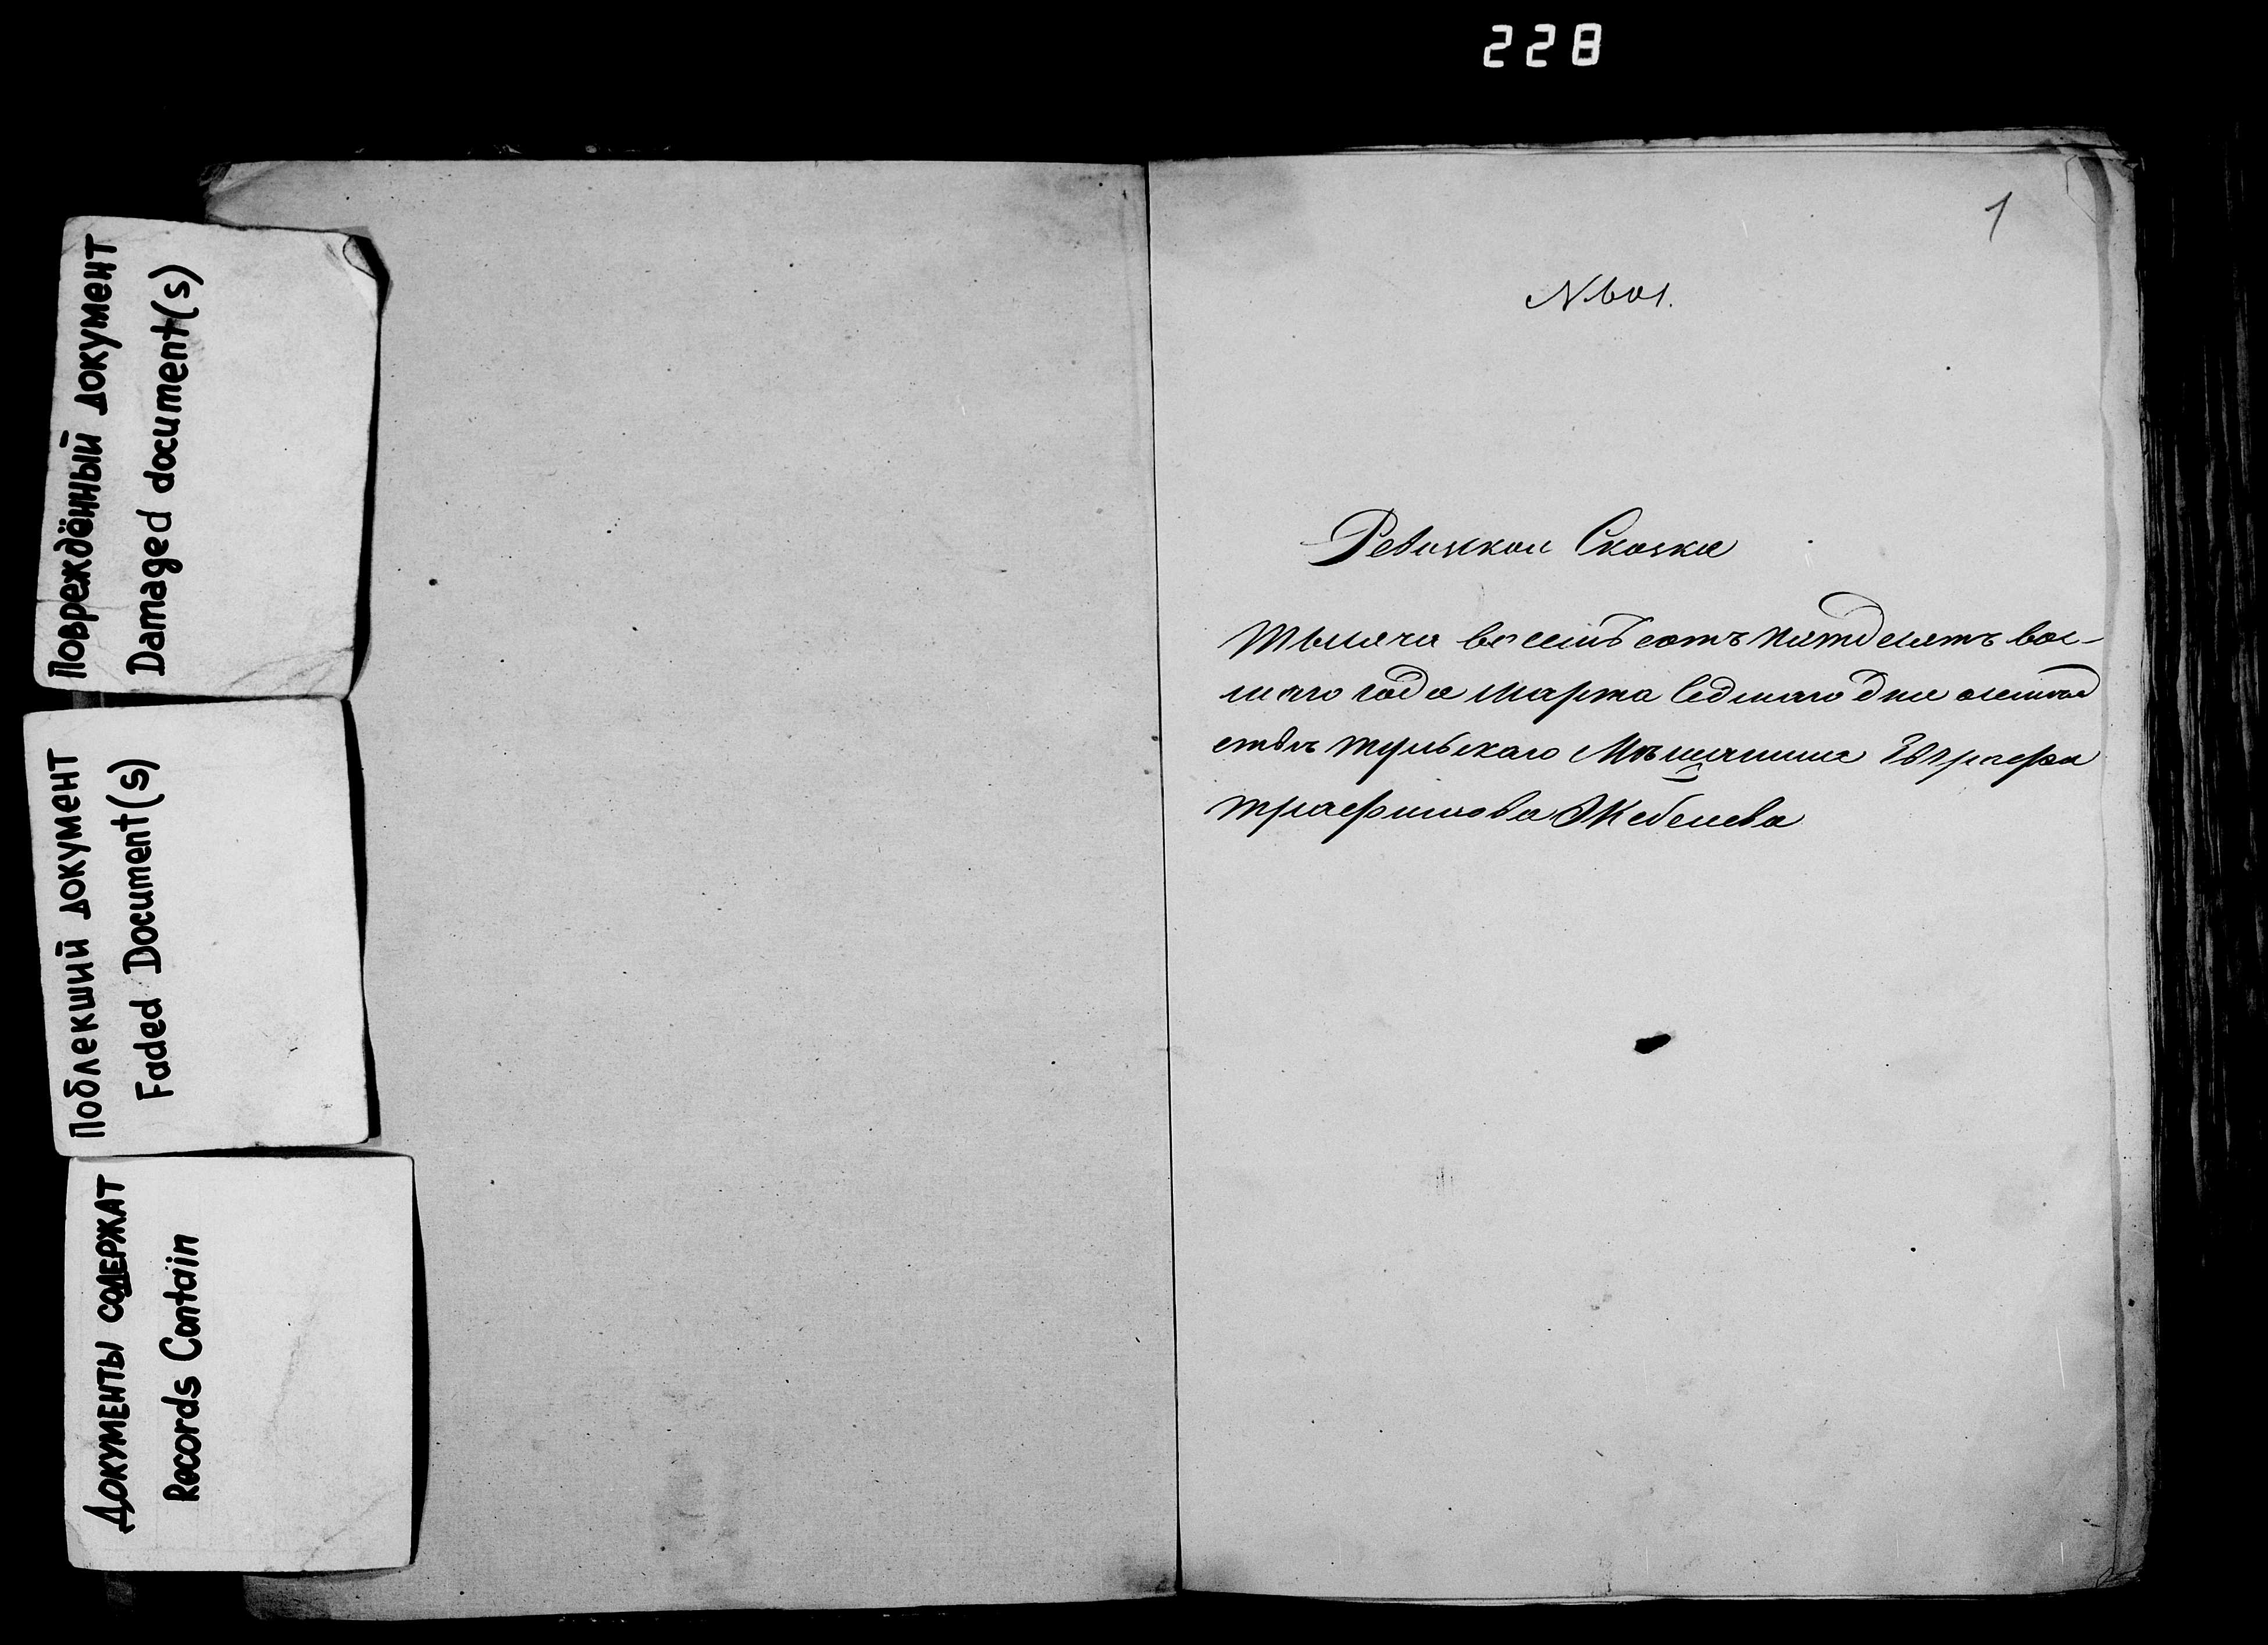 228
Повреждённый документ
Damaged document(s)
Поблекший документ
Faded Document(s)
Документы содержат
Records Contain
1
N 601.
Ревизкая Сказка
Тысяча восемь сотъ пятдесятъ вос-
маго года марта седмаго дня
тульскаго Мѣщанина
Трафимова Жебелева